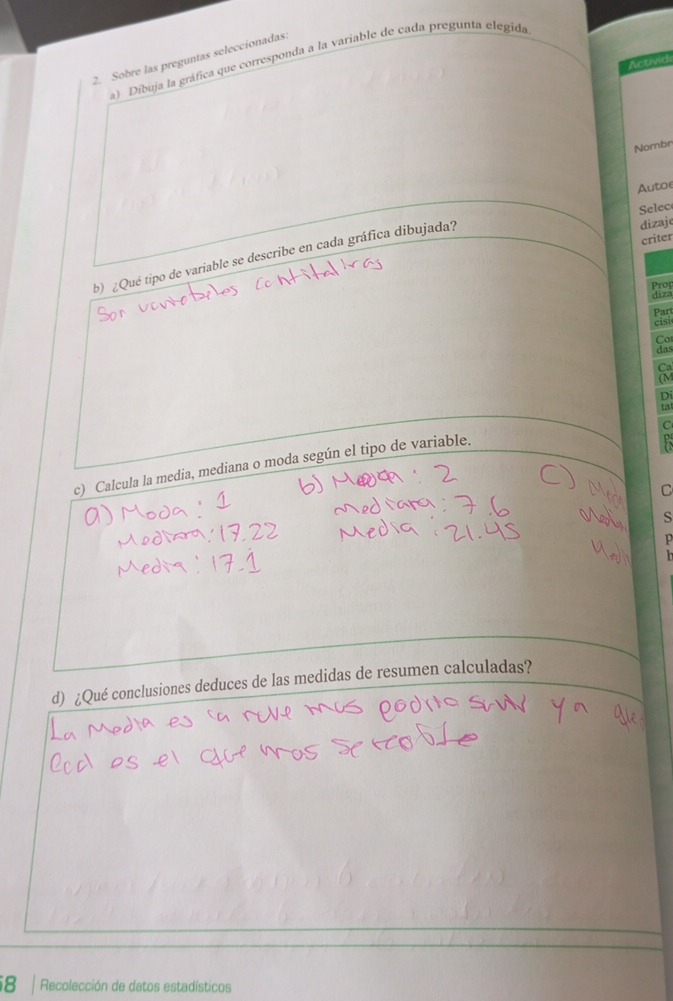 2. Sobre las preguntas seleccionadas:
a) Dibuja la gráfica que corresponda a la variable de cada pregunta elegida.
b) ¿Qué tipo de variable se describe en cada gráfica dibujada?
Son
c) Calcula la media, mediana o moda según el tipo de variable.
a) Moda: 1
b) Moda: 2
c)
Mediana: 17.22
mediana: 7.6
Media: 17.1
Media: 21.45
d) ¿Qué conclusiones deduces de las medidas de resumen calculadas?
La Media es la mas ya
es el que mas se
58 | Recolección de datos estadísticos
Activid
Nombr
Autoe
Selec
dizaje
criter
Prop
diza
Part
cisi
Co
das
Ca
(M
Di
tat
C
C
S
p
h